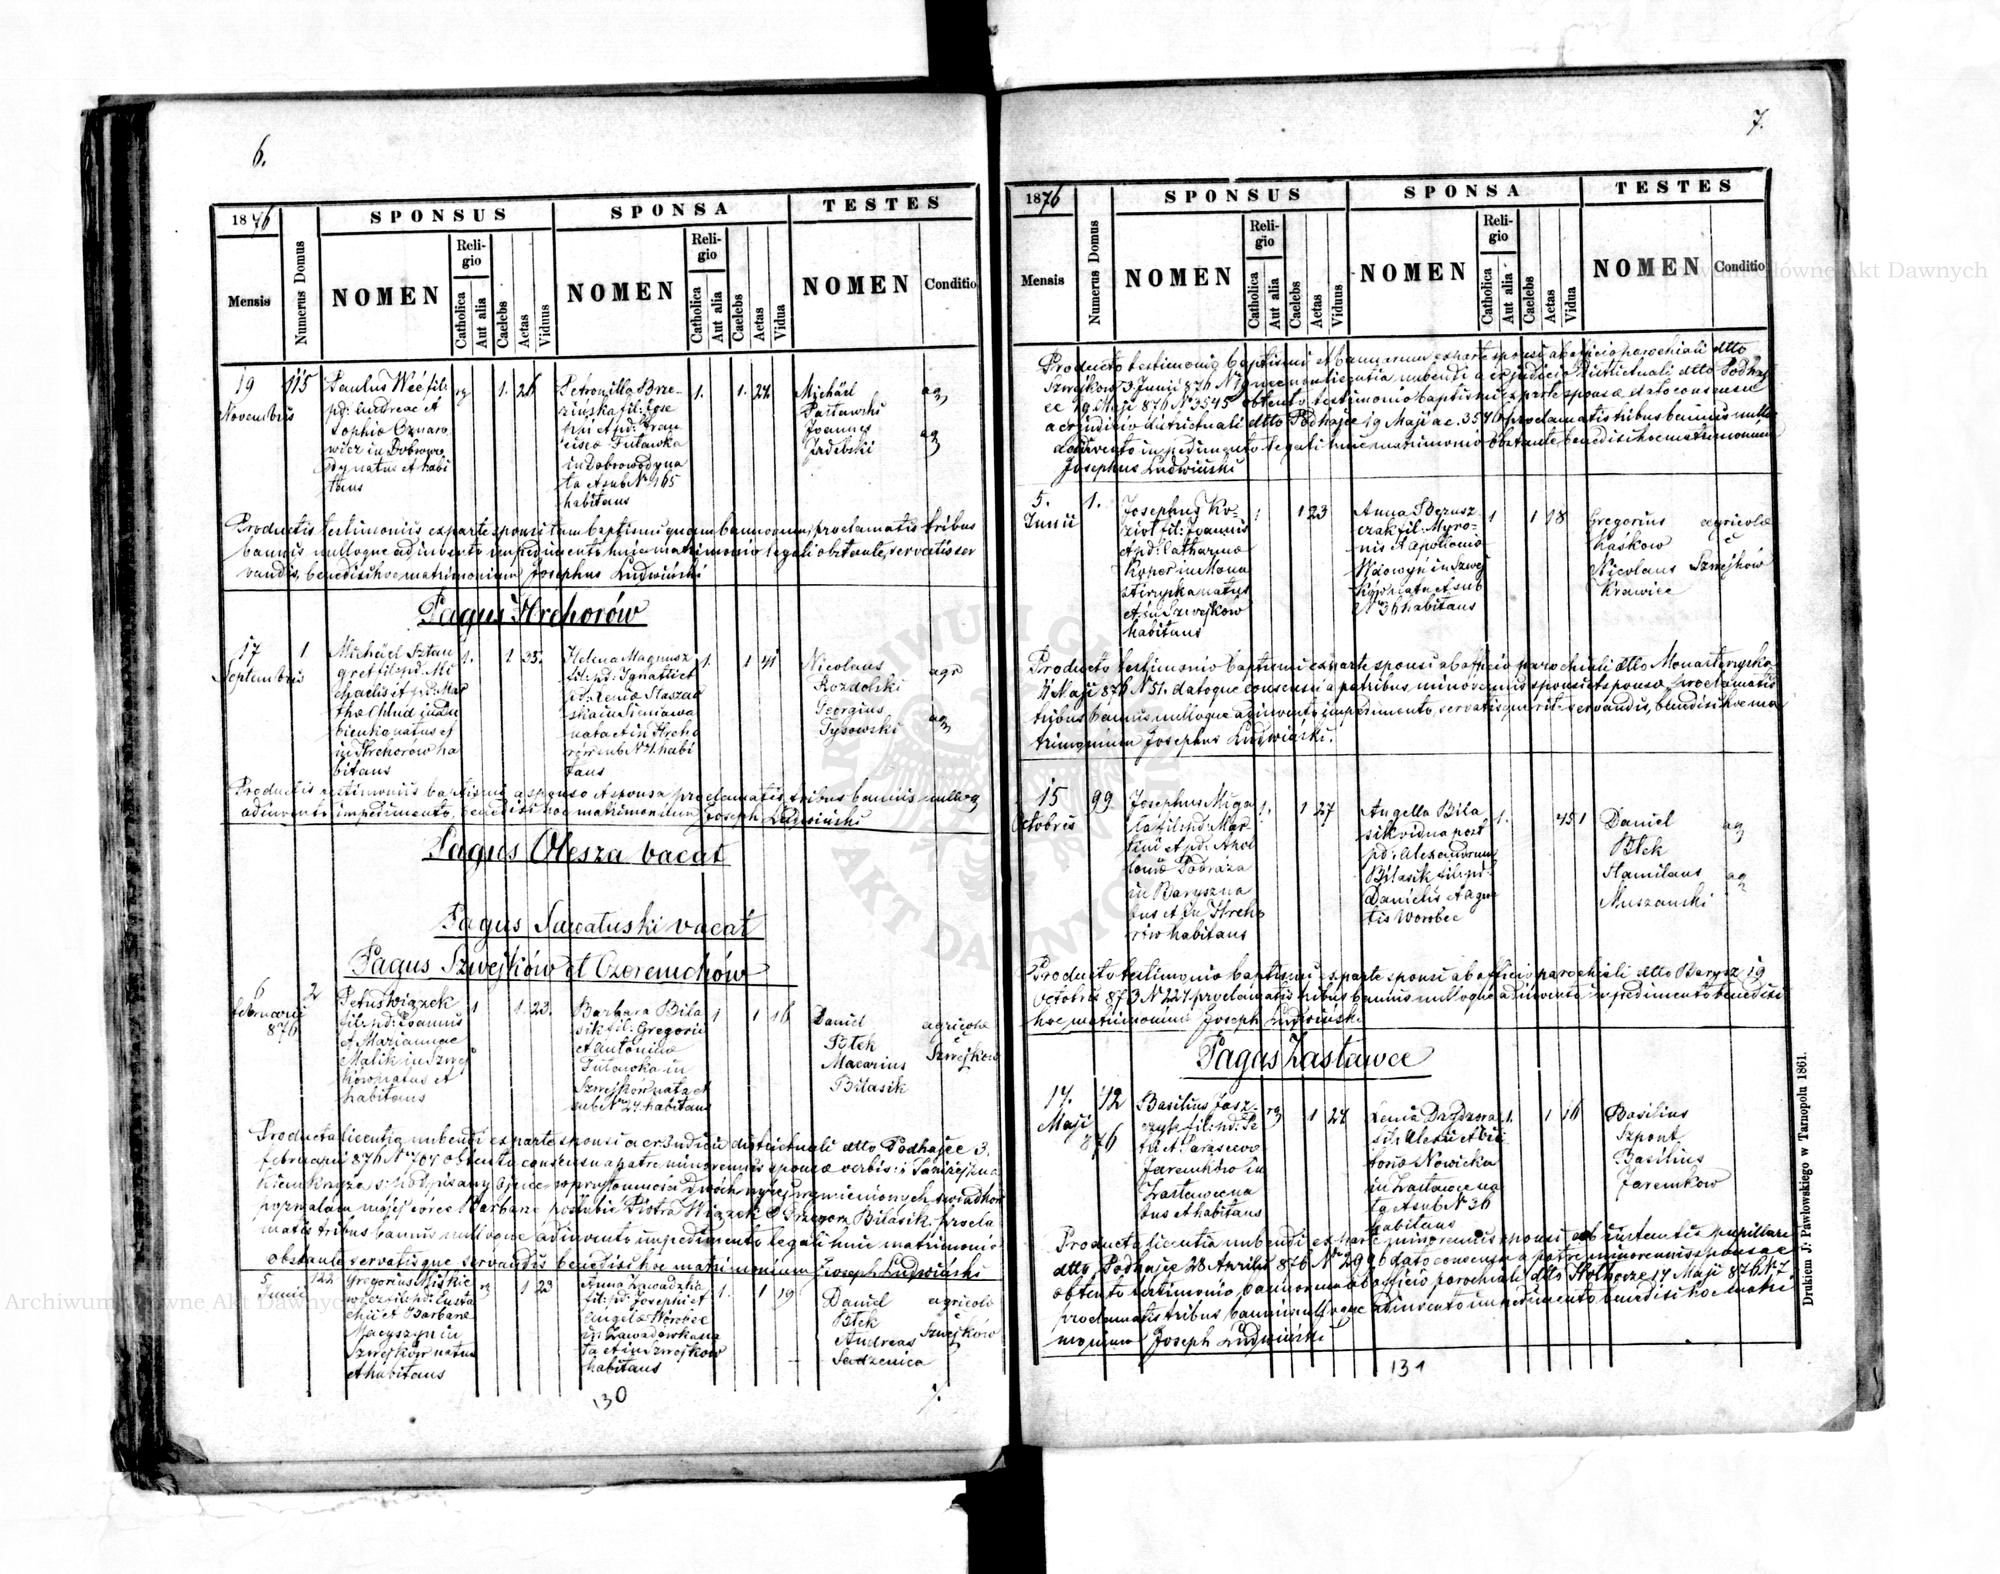 6.
1876
SPONSUS
SPONSA
TESTES
Mensis
Numerus Domus
NOMEN
Religio
Catholica
Aut alia
Caelebs
Aetas
Viduus
NOMEN
Religio
Catholica
Aut alia
Caelebs
Aetas
Vidua
NOMEN
Conditio
19
Novembris
115
Paulus Weć fil:
pd: Andreae et
Sophiæ Oznaro
wicz in Dobrowo
dy natus et habi
tans
1. 26
Petronilla Brze-
zińska fil: Jose
phi et pd: Fran
ciscæ Tutawka
in Dobrowody na
ta et sub Nr 165
habitans
1. 1. 24
Michael
Joannes
Jadebski
Productis testimoniis ex parte sponsi tam baptismi quam bannorum, proclamatis tribus
bannis nulloque adinvento impedimento huic matrimonio legali obstante, servatis ser
vandis, benedixi hoc matrimonium Josephus Ludwiński
Pagus Hrehorów
17
Septembris
1
Michael Sztan
gret fil: pd: Mi
chaelis et pd: Mar
thæ
natus et
in Hrehorow ha
bitans
1. 1 35.
Helena Magnusz
fil: pd: Ignatii et
Staszew
ska in Sieniawa
nata et in Hreho
rów sub Nr 1. habi
tans
1. 1 41
Nicolaus
Rozdolski
Georgius
Tysowski
agr
Productis testimoniis baptismi a sponso et sponsa proclamatis tribus bannis nulloq
adinvento impedimento, benedixi hoc matrimonium Joseph Ludwiński
Pagus Olesza vacat
Pagus Sawaluski vacat
Pagus Szwejków et Czeremchów
6
Februarii
876
2
Petrus Wiązek
fil: pd: Joannis
et Mariannae
Malik in Szwej
ków natus et
habitans
1 1. 23.
Barbara Bila
sik fil: Gregorii
et Antoninæ
Tutawka in
Szwejków nata et
sub Nr 27. habitans
1 1 16
Daniel
Ptek
Macarius
Bilasik
agricolæ
Szwejków
Producta licentia nubendi ex parte sponsi a cr Judicio districtuali dtto Podhajce 3.
Februarii 876 Nr 707 obtento consensu a patre minorennis sponsæ verbis:
podpisany ojciec w przytomności dwóch niżej wymienionych świadków
pozwalam mojej córce Barbarze poślubić Piotra Wiązek Grzegorz Bilasik. procla
matis tribus bannis nulloque adinvento impedimento legali huic matrimonio
obstante servatisque servandis benedixi hoc matrimonium Joseph Ludwiński
5
Junii
122
Gregorius Miśkie
wicz fil: pd: Eusta
chii et Barbaræ
Macyszyn in
Szwejków natus
et habitans
1 23
Anna Zawadzka
fil: pd: Josephi et
Angelæ Worobec
in Zawadówka na
ta et in Szwejkow
habitans
1. 1 19
Daniel
Ptek
Andreas
Sadzenica
agricolæ
Szwejków
130
7.
7.
1876
SPONSUS
SPONSA
TESTES
Mensis
Numerus Domus
NOMEN
Religio
Catholica
Aut alia
Caelebs
Aetas
Viduus
NOMEN
Religio
Catholica
Aut alia
Caelebs
Aetas
Vidua
NOMEN
Conditio
Producto testimonio baptismi et bannorum ex parte sponsi ab officio parochiali dtto
Szwejkow 3 Junii 876 Nr 7 nec non licentia nubendi a cr judicio districtuali dtto Podhaj
ce 19 Maji 876 Nr 3545 obtento testimonio baptismi ex parte sponsæ dato consensu
a cr judicio districtuali dtto Podhajce 19 Maji a c. 3546 proclamatis tribus bannis nullo
adinvento impedimento legali huic matrimonio obstante, benedixi hoc matrimonium
Josephus Ludwiński
5.
Junii
1.
Josephus Ko-
zioł fil: Joannis
et pd: Catharinæ
Koper in Mona
sterzyska natus
et in Szwejków
habitans
1 1 23
Anna Berusz
czak fil: Myro-
nis et Apoloniæ
Wdowyn in Szwej
ków nata et sub
Nr 36 habitans
1 1 18
Gregorius
Kaśkow
Nicolaus
Krawiec
agricolæ
Szwejków
Producto testimonio baptismi ex parte sponsi ab officio parochiali dtto Monasterzyska
4 Maji 876 Nr 51. datoque consensu a patribus minorennis sponsi et sponsæ, proclamatis
tribus bannis nulloque adinvento impedimento, servatisque rit: servandis, benedixi hoc ma
trimonium Josephus Ludwiński.
15
Octobris
99
Josephus Miga
ła fil: pd: Mar-
tini et pd: Apol
loniæ Podróza
in Barysz na
tus et in Hreho
rów habitans
1. 1 27
Angella Bila
sik vidua post
pd: Alexandrum
Bilasik fil: pd:
Danielis et Agne
tis Worobec
1. 45 1
Daniel
Ptek
Stanislaus
Muszanski
Producto testimonio baptismi ex parte sponsi ab officio parochiali dtto Barysz 19
Octobris 873 Nr 227. proclamatis tribus bannis nulloque adinvento impedimento benedixi
hoc matrimonium Joseph Ludwiński
Pagus Zastawce
17.
Maji
876
72
Basilius Jasz-
czyk fil: pd: Pe
tri et Parascevæ
Jaremków in
Zastawce na
tus et habitans
1 24
Xenia Dagdzora
fil: Alexii et Vic
toriæ Nowicka
in Zastawce na
ta et sub Nr 36
habitans
1. 1 16
Basilius
Szpont
Basilius
Jaremkow
Producta licentia nubendi ex parte minorennis sponsi ab instantia pupillari
dtto Podhajce 28 Aprilis 876 Nr 2996 dato consensu a patre minorennis sponsae
obtento testimonio bannorum ab officio parochiali dtto Hołhocze 17 Maji 876 Nr 7
proclamatis tribus bannis nulloque adinvento impedimento benedixi hoc matri
monium Joseph Ludwiński
131
Drukiem J. Pawłowskiego w Tarnopolu 1861.
Archiwum Główne Akt Dawnych